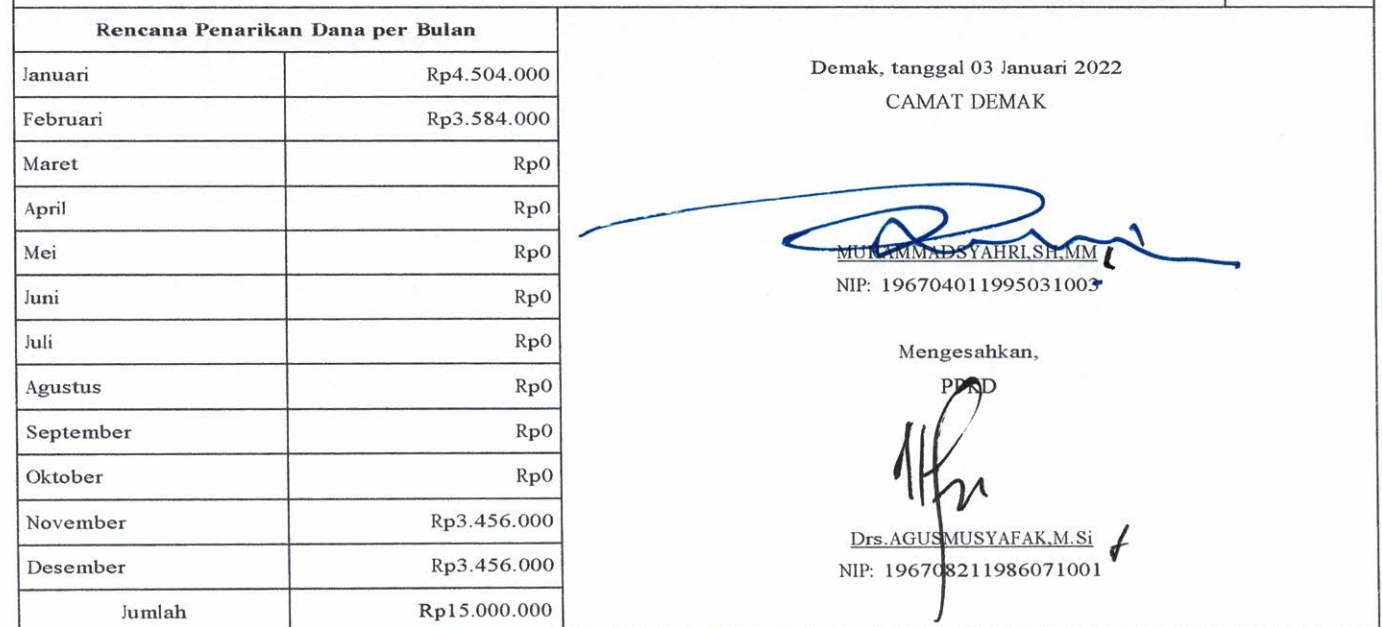 Rencana Penarikan Dana per Bulan
Januari Rp4.504.000
Februari Rp3.584.000
Maret Rp0
April Rp0
Mei Rp0
Juni Rp0
Juli Rp0
Agustus Rp0
September Rp0
Oktober Rp0
November Rp3.456.000
Desember Rp3.456.000
Jumlah Rp15.000.000
Demak, tanggal 03 Januari 2022
CAMAT DEMAK
MUHAMMADSYAHRI,SH,MM
NIP: 196704011995031003
Mengesahkan,
PPKD
Drs.AGUSMUSYAFAK,M.Si
NIP: 196708211986071001